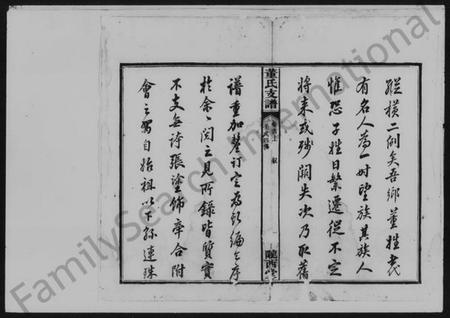 縱橫二例矣吾鄉董姓代
有名人為一時望族其族人
惟恐子姓日繁遷徙不定
將來或殘闕失次乃取舊
董氏支譜
隴西堂
譜重加釐訂定為新編乞序
於余余閱之見所錄皆質實
不支無誇張塗飾牽合附
會之習自始祖以下縣連珠
FamilySearch International